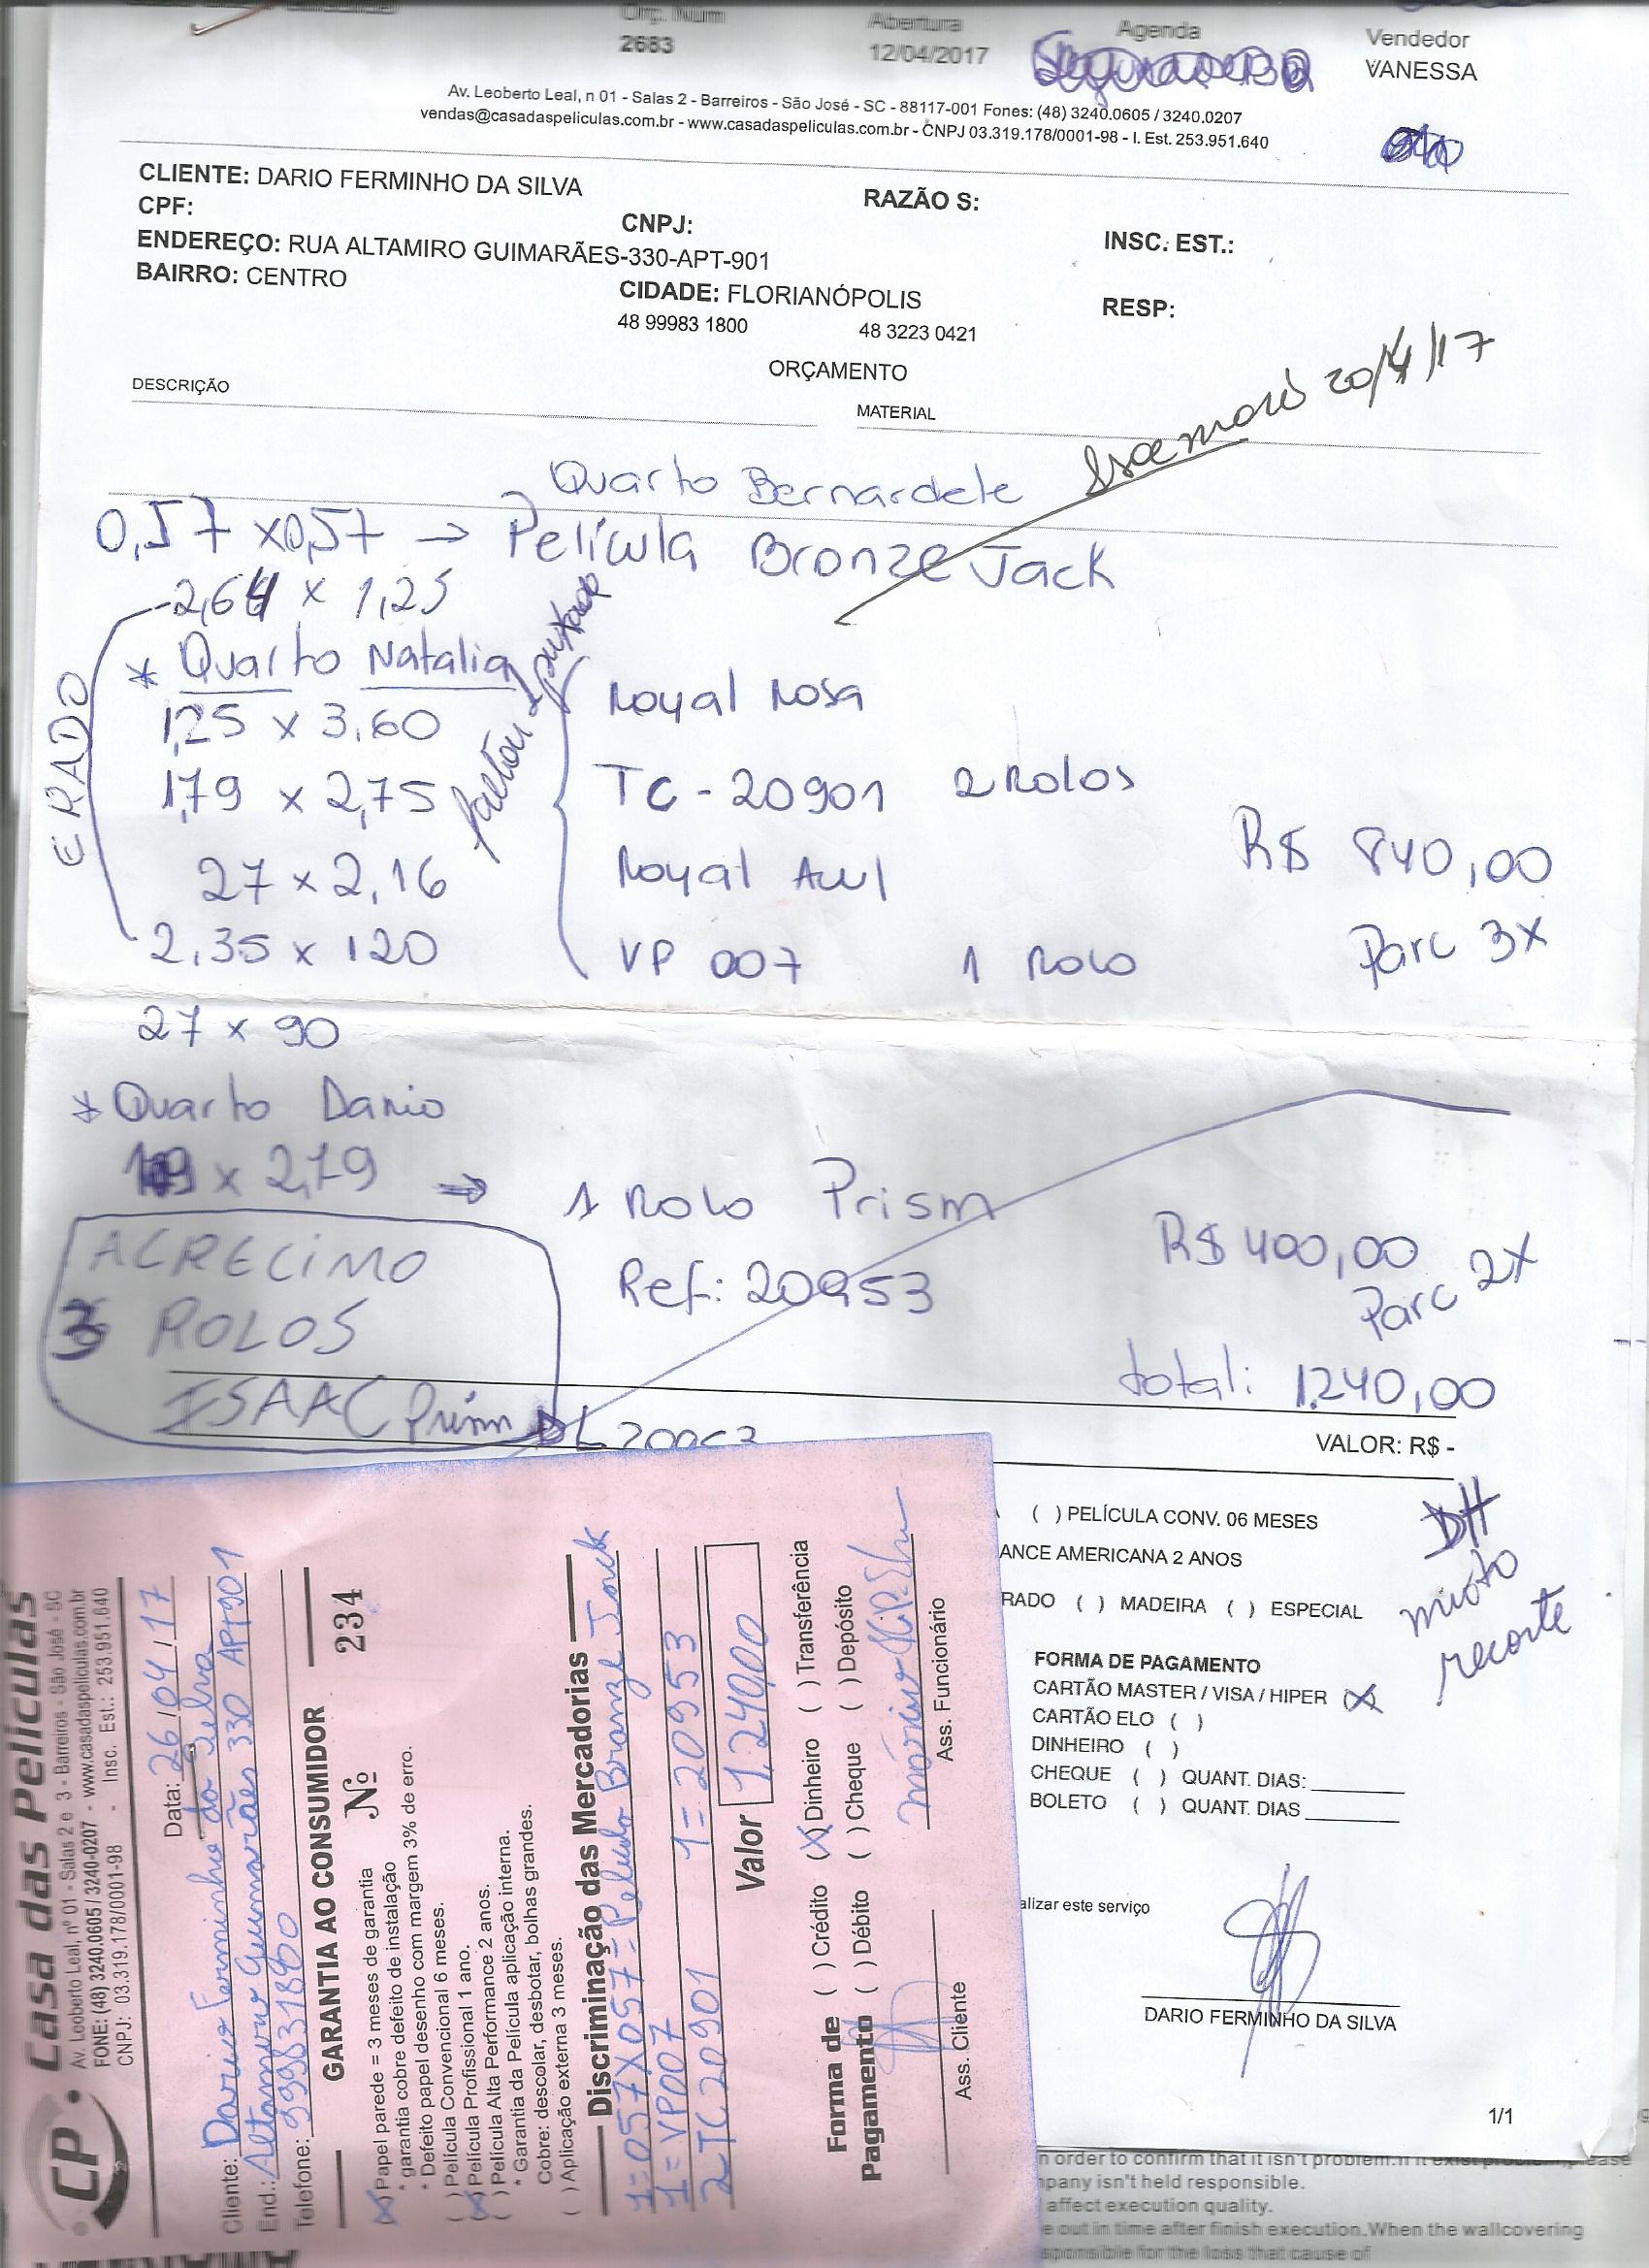 Orç. Núm
2683
Abertura
12/04/2017
Agenda
Vendedor
VANESSA
Av. Leoberto Leal, n 01 - Salas 2 - Barreiros - São José - SC - 88117-001 Fones: (48) 3240.0605 / 3240.0207
vendas@casadaspeliculas.com.br - www.casadaspeliculas.com.br - CNPJ 03.319.178/0001-98 - I. Est. 253.951.640
CLIENTE: DARIO FERMINHO DA SILVA
RAZÃO S:
CPF:
CNPJ:
INSC. EST.:
ENDEREÇO: RUA ALTAMIRO GUIMARÃES-330-APT-901
BAIRRO: CENTRO
CIDADE: FLORIANÓPOLIS
RESP:
48 99983 1800
48 3223 0421
ORÇAMENTO
DESCRIÇÃO
MATERIAL
20/4/17
Quarto Bernardete
0,57 x 0,57 → Película Bronze Jack
2,64 x 1,25
ERADO
* Quarto Natalia
1,25 x 3,60
Royal Rosa
1,79 x 2,75
TC-20901 2 Rolos
27 x 2,16
Royal Azul
R$ 840,00
2,35 x 120
VP 007 1 Rolo
Parc 3x
27 x 90
* Quarto Dario
x 2,79 → 1 Rolo Prism
R$ 400,00
Parc 2x
Ref: 20953
ACRECIMO
3 ROLOS
ISAAC Prism
total: 1.240,00
VALOR: R$ -
( ) PELÍCULA CONV. 06 MESES
ANCE AMERICANA 2 ANOS
RADO ( ) MADEIRA ( ) ESPECIAL
DH
recorte
FORMA DE PAGAMENTO
CARTÃO MASTER / VISA / HIPER (X)
CARTÃO ELO ( )
DINHEIRO ( )
CHEQUE ( ) QUANT. DIAS:
BOLETO ( ) QUANT. DIAS
alizar este serviço
DARIO FERMINHO DA SILVA
1/1
CP. Casa das Películas
Av. Leoberto Leal, nº 01 - Salas 2 e 3 - Barreiros - São José - SC
FONE: (48) 3240.0605 / 3240-0207 - www.casadaspeliculas.com.br
CNPJ: 03.319.178/0001-98 - Insc. Est.: 253.951.640
Data: 26/04/17
Cliente: Dario Ferminho da Silva
End.: Altamiro Guimarães 330 APT901
Telefone: 999831800
GARANTIA AO CONSUMIDOR
Nº 234
(X) Papel parede = 3 meses de garantia
* garantia cobre defeito de instalação
* Defeito papel desenho com margem 3% de erro.
( ) Película Convencional 6 meses.
(X) Película Profissional 1 ano.
( ) Película Alta Performance 2 anos.
* Garantia da Película aplicação interna.
Cobre: descolar, desbotar, bolhas grandes.
( ) Aplicação externa 3 meses.
Discriminação das Mercadorias
1=057X057= Pelicula Bronze Jack
1=VP007 1=20953
2-TC20901
Valor 1.240,00
Forma de Pagamento
( ) Crédito (X) Dinheiro ( ) Transferência
( ) Débito ( ) Cheque ( ) Depósito
Ass. Cliente
Ass. Funcionário
n order to confirm that it isn't problem.
mpany isn't held responsible.
affect execution quality.
e out in time after finish execution.When the wallcovering
sponsible for the loss that cause of